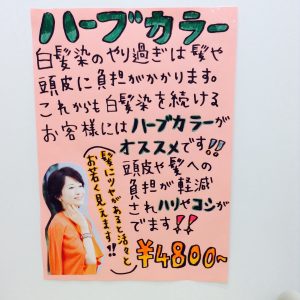 ハーブカラー
白髪染のやり過ぎは髪や
頭皮に負担がかかります。
これからも白髪染を続ける
お客様にはハーブカラーが
オススメです!!
頭皮や髪への
負担が軽減
されハリやコシが
でます!!
髪にツヤがあると活々と
お若く見えます!!
¥4800~